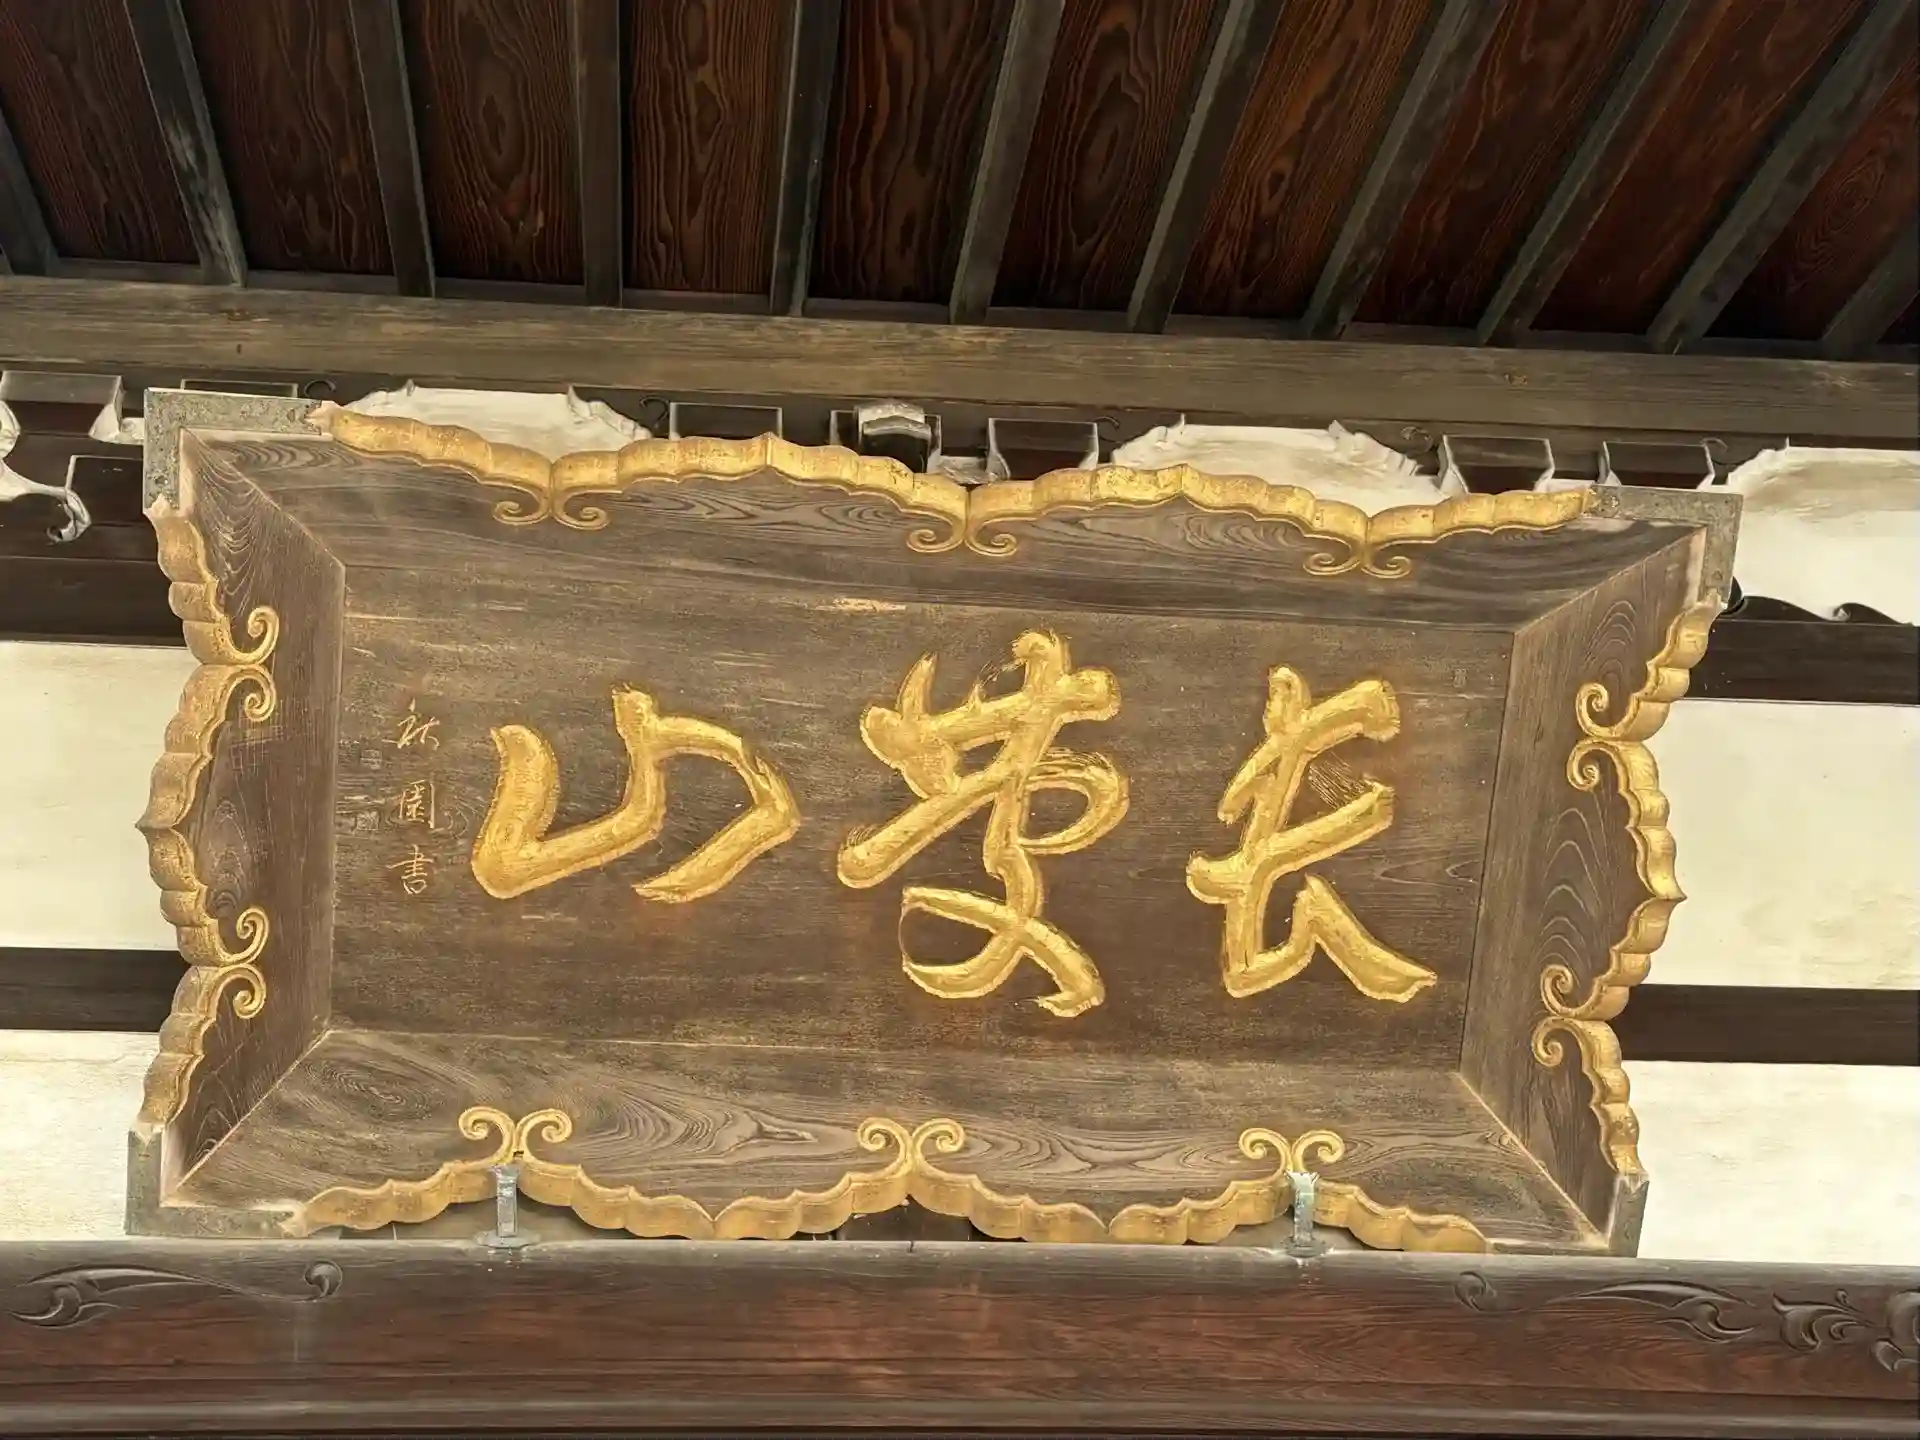 長慶山
秋園書